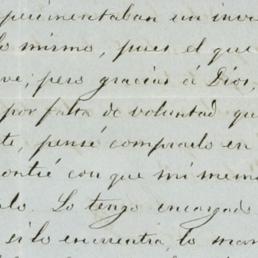 perimentaban un inve
lo mismo, pues el que
ve; pero gracias á Dios,
por falta de voluntad qu
te, pensé comprarlo en
contré con que mi memo
lo. Lo tengo encargado
si lo encuentra, lo man